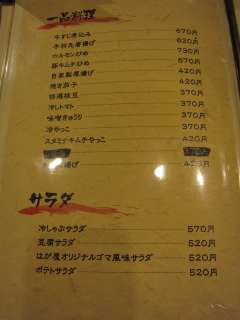 一品料理
牛すじ煮込み 670円
手羽先唐揚げ 620円
ホルモン炒め 730円
豚キムチ炒め 670円
自家製厚揚げ 420円
焼き茄子 420円
枝豆 370円
冷しトマト 370円
味噌きゅうり 370円
冷やっこ 370円
スタミナキムチやっこ 420円
揚げ 420円
サラダ
冷しゃぶサラダ 570円
豆腐サラダ 520円
はが屋オリジナルゴマ風味サラダ 520円
ポテトサラダ 520円